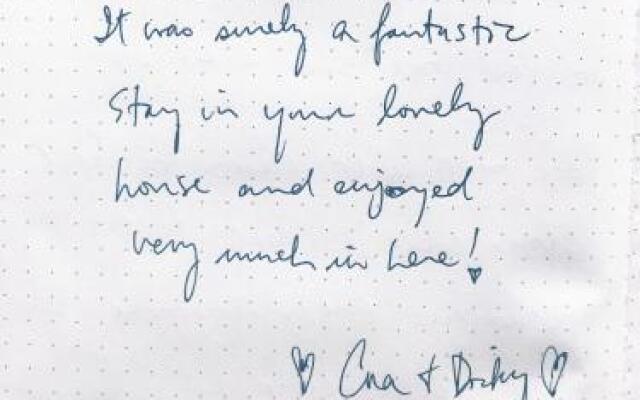 It was surely a fantastic
stay in your lovely
house and enjoyed
very much in here!